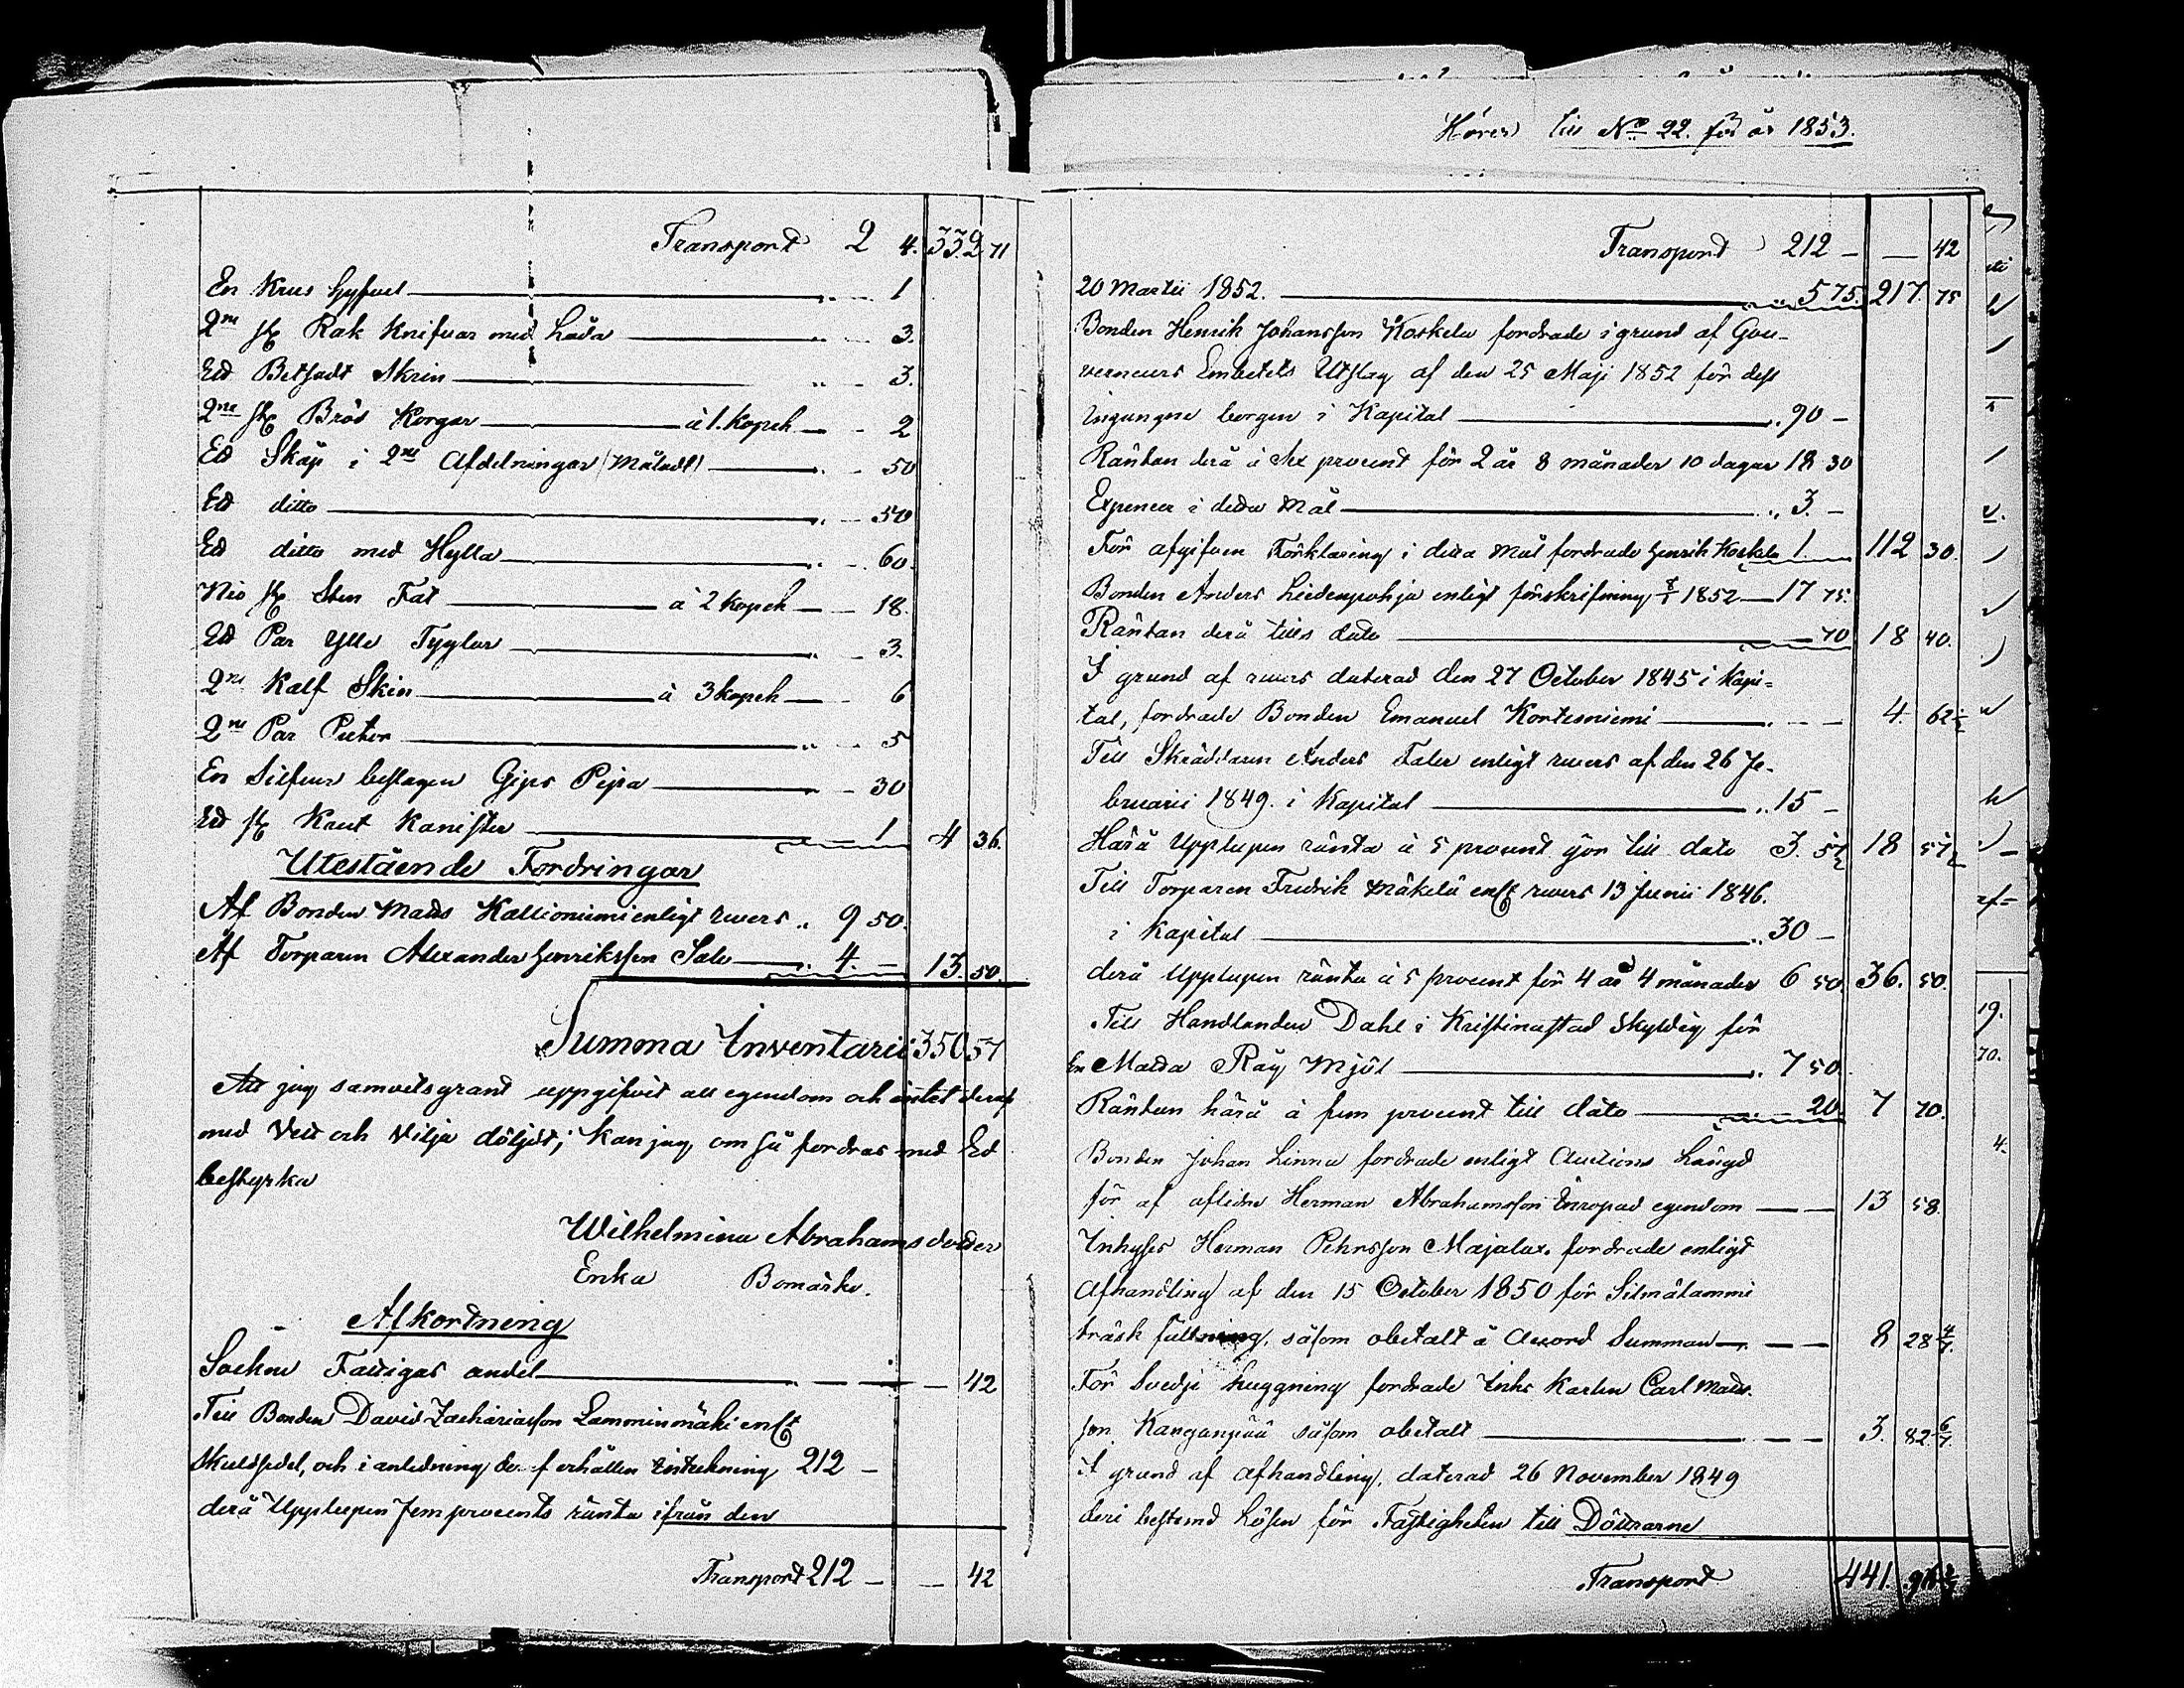 Transport 2 4. 332 71
En Krus Gyfvel 1
2ne st Rak Knifvar med Låda 3.
Ett Betsadt Skrin 3.
2ne st Bröd Korgar à 1. Kopek 2
Ett Skåp i 2ne Afdelningar (Måladt) 50
Ett ditto 50
Ett ditto med Hylla 60.
Nio st Sten Fat à 2 Kopek 18.
Ett Par Ylle Tyglar 3.
2ne Kalf Skin à 3 kopek 6
2ne Par 5
En Silfver beslagen Gips Pipa 30
Ett st Krut Kanister 1 4 36.
Utestående Fordringar
Af Bonden Matts Kallioniemi enligt revers 9 50.
Af Torparen Alexander Henriksson Salo 4. – 13. 50.
Summa Inventarii 350 57
Att jag samvetsgrant uppgifvit all egendom och intet deraf
med Vett och Vilja döljdt; kan jag om så fordras med Ed
bestyrka
Wilhelmina Abrahamsdotter
Enka Bomärke.
Afkortning
Socken Fattigas andel 42
Till Bonden David Zachariasson Lamminmäki enl
skuldsedel, och i anledning deraf erhållen inteckning 212 –
derå Upplupen fem procents ränta ifrån den
Transport 212 – – 42
Hörer till No 22. för år 1853.
Transport 212 – – 42
20 Martii 1852. 5 75. 217. 75
Bonden Henrik Johansson Koskela fordrade i grund af Gou-
verneurs Embetets Utslag af den 25 Maji 1852 för dess
ingångne borgen i Kapital 90 –
Räntan derå à sex procent för 2 år 8 månader 10 dagar 18 30
Expencer i detta Mål 3. –
För afgifven Förklaring i detta Mål fordrade Henrik Koskela 1. 112 30.
Bonden Anders Liedenpohja enligt förskrifning 1852 17 75.
Räntan derå tills dato 70 18 40.
I grund af revers daterad den 27 October 1845 i Kapi-
tal, fordrade Bonden Emanuel Kortesniemi 4. 62 1/2
Till Skräddaren Anders Taler enligt revers af den 26 Fe-
bruarii 1849. i Kapital 15 –
Härå Upplupen ränta à 5 procent gör till dato 3. 57 1/2 18 57 1/2
Till Torparen Fredrik Mäkelä enl revers 13 Junii 1846.
i Kapital 30 –
derå Upplupen ränta à 5 procent för 4 år 4 månader 6 50. 36. 50.
Till Handlanden Dahl i Kristinastad skyldig för
En Matta Råg Mjöl 7 50.
Räntan härå à fem procent till dato 20. 7 70.
Bonden Johan Linna fordrade enligt Auctions Längd
för af aflidne Herman Abrahamsson inropad egendom 13 58.
Inhyses Herman Pehrsson Majalux. fordrade enligt
Afhandling af den 15 October 1850 för Silmälammi
träsk fällning, såsom obetalt à Accord Summan 8 28 4/7.
För Svedje huggning fordrade Inhs Karlen Carl Matts-
son Kanganpää såsom obetalt 3. 82 6/7.
I grund af afhandling, daterad 26 November 1849
deri bestemd Lösen för Fastigheten till Döttrarne
Transport 441.
19.
70.
4.